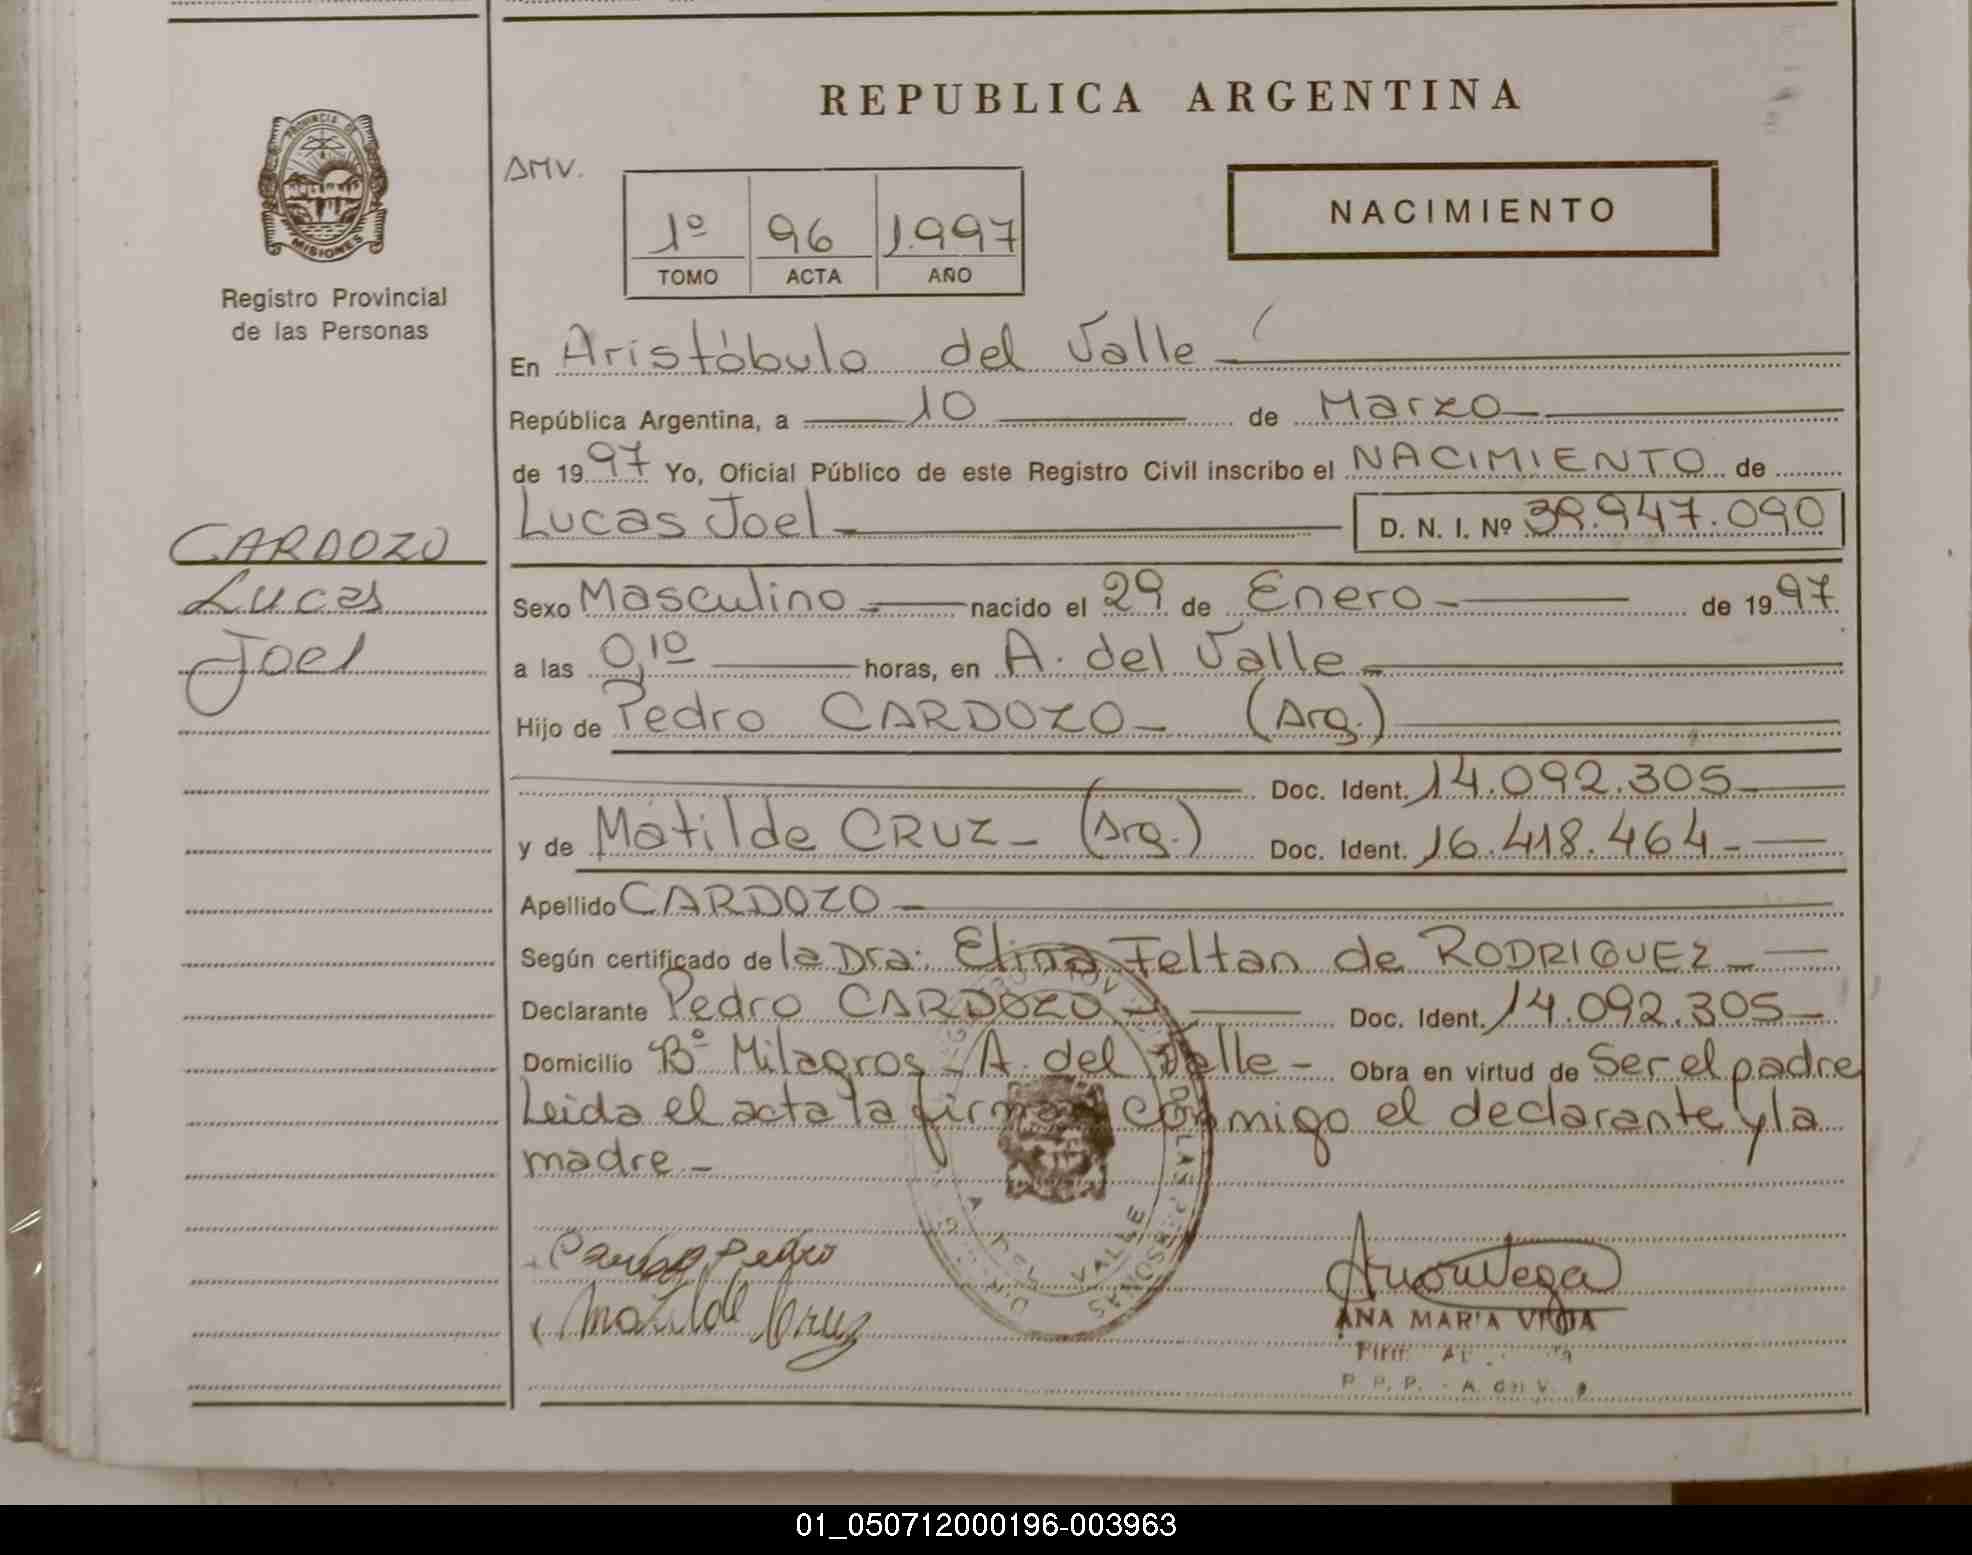 REPUBLICA ARGENTINA
PROVINCIA DE
MISIONES
Registro Provincial
de las Personas
AMV.
1º 96 1.997
TOMO ACTA AÑO
NACIMIENTO
En Aristóbulo del Valle
República Argentina, a 10 de Marzo
de 1997 Yo, Oficial Público de este Registro Civil inscribo el NACIMIENTO de
Lucas Joel D. N. I. Nº 39.947.090
CARDOZO
Lucas
Joel
Sexo Masculino nacido el 29 de Enero de 1997
a las 0,10 horas, en A. del Valle
Hijo de Pedro CARDOZO (Arg.)
Doc. Ident. 14.092.305
y de Matilde CRUZ (Arg.) Doc. Ident. 16.418.464
Apellido CARDOZO
Según certificado de la Dra: Elina Feltan de RODRIGUEZ
Declarante Pedro CARDOZO Doc. Ident. 14.092.305
Domicilio Bº Milagros - A. del Valle - Obra en virtud de Ser el padre
Leida el acta la firman conmigo el declarante y la
madre
Cardozo Pedro
Matilde Cruz
ANA MARIA VEGA
R. P. P. - A. del V.
DE LAS PERSONAS
A. DEL VALLE
01_050712000196-003963